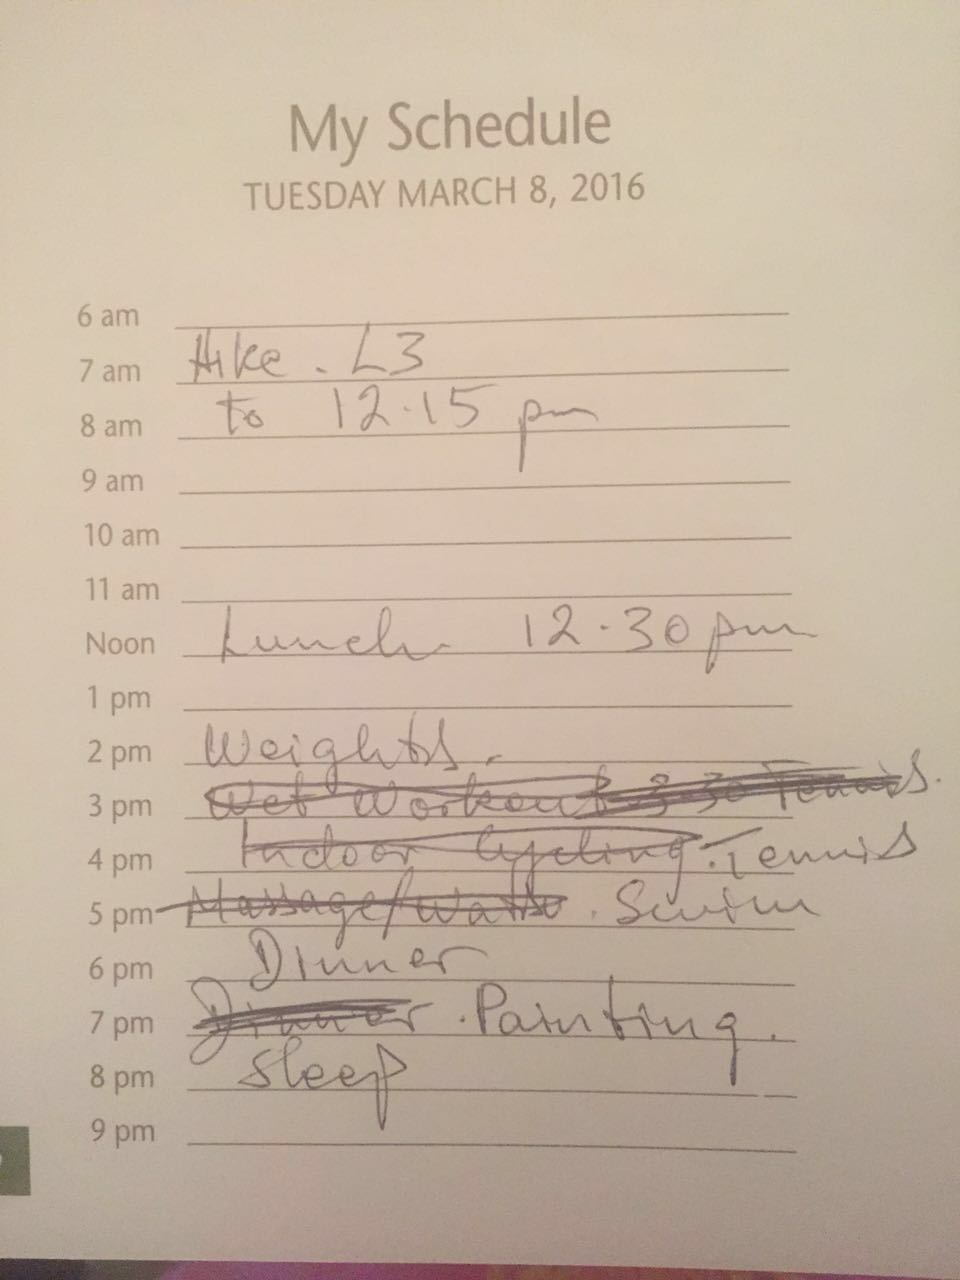 My Schedule
TUESDAY MARCH 8, 2016
6 am
7 am Hike . L3
8 am to 12.15 pm
9 am
10 am
11 am
Noon Lunch 12.30 pm
1 pm
2 pm Weights.
3 pm Wet Workout 3 30 Tennis.
4 pm Indoor Cycling. Tennis
5 pm Massage/ . Swim
6 pm Dinner
7 pm Dinner . Painting.
8 pm Sleep
9 pm